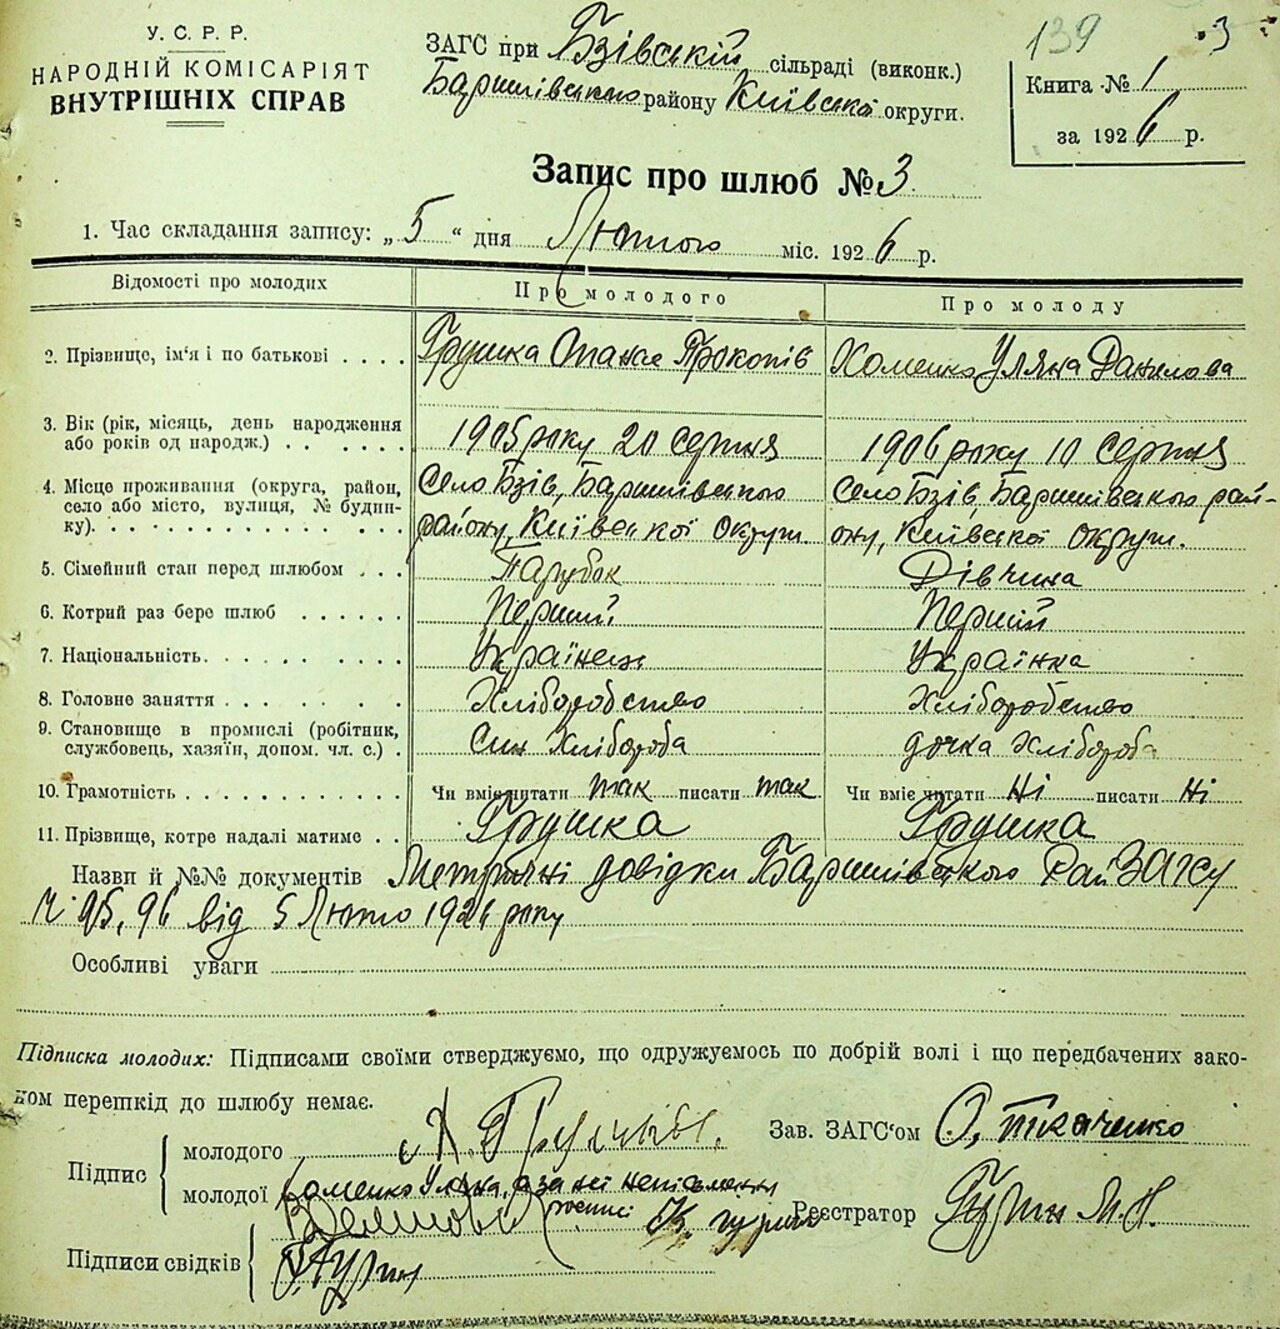 У. С. Р. Р.
НАРОДНІЙ КОМІСАРІЯТ
ВНУТРІШНІХ СПРАВ
ЗАГС при Бзівській сільраді (виконк.)
Баришівського району Київської округи.
139 3
Книга № 1
за 1926 р.
Запис про шлюб № 3
1. Час складання запису: „5“ дня Лютого міс. 1926 р.
Відомості про молодих Про молодого Про молоду
2. Прізвище, ім'я і по батькові . . . . Грушка Опанас Прокопів Хоменко Уляна Данилова
3. Вік (рік, місяць, день народження
або років од народж.) . . . . . . . 1905 року 20 серпня 1906 року 10 серпня
4. Місце проживання (округа, район, Село Бзів, Баришівського Село Бзів, Баришівського рай-
село або місто, вулиця, № будин-
ку). . . . . . . . . . . . . . . району, Київської округи. ону, Київської округи.
5. Сімейний стан перед шлюбом . . . Парубок Дівчина
6. Котрий раз бере шлюб . . . . . . Перший Перший
7. Національність. . . . . . . . . . Українець Українка
8. Головне заняття . . . . . . . . Хліборобство Хліборобство
9. Становище в промислі (робітник,
службовець, хазяїн, допом. чл. с.) . Син Хлібороба дочка Хлібороба
10. Грамотність . . . . . . . . . . . Чи вміє читати так писати так Чи вміє читати Ні писати Ні
11. Прізвище, котре надалі матиме . . Грушка Грушка
Назви й №№ документів Метричні довідки Баришівського Рай ЗАГСу
№ 95, 96 від 5 Лютого 1926 року
Особливі уваги
Підписка молодих: Підписами своїми стверджуємо, що одружуємось по добрій волі і що передбачених зако-
ном перешкід до шлюбу немає.
Підпис
молодого
Зав. ЗАГС'ом О. Ткаченко
молодої Хоменко Уляна, а за неї неписьменну
Реєстратор М. П.
Підписи свідків